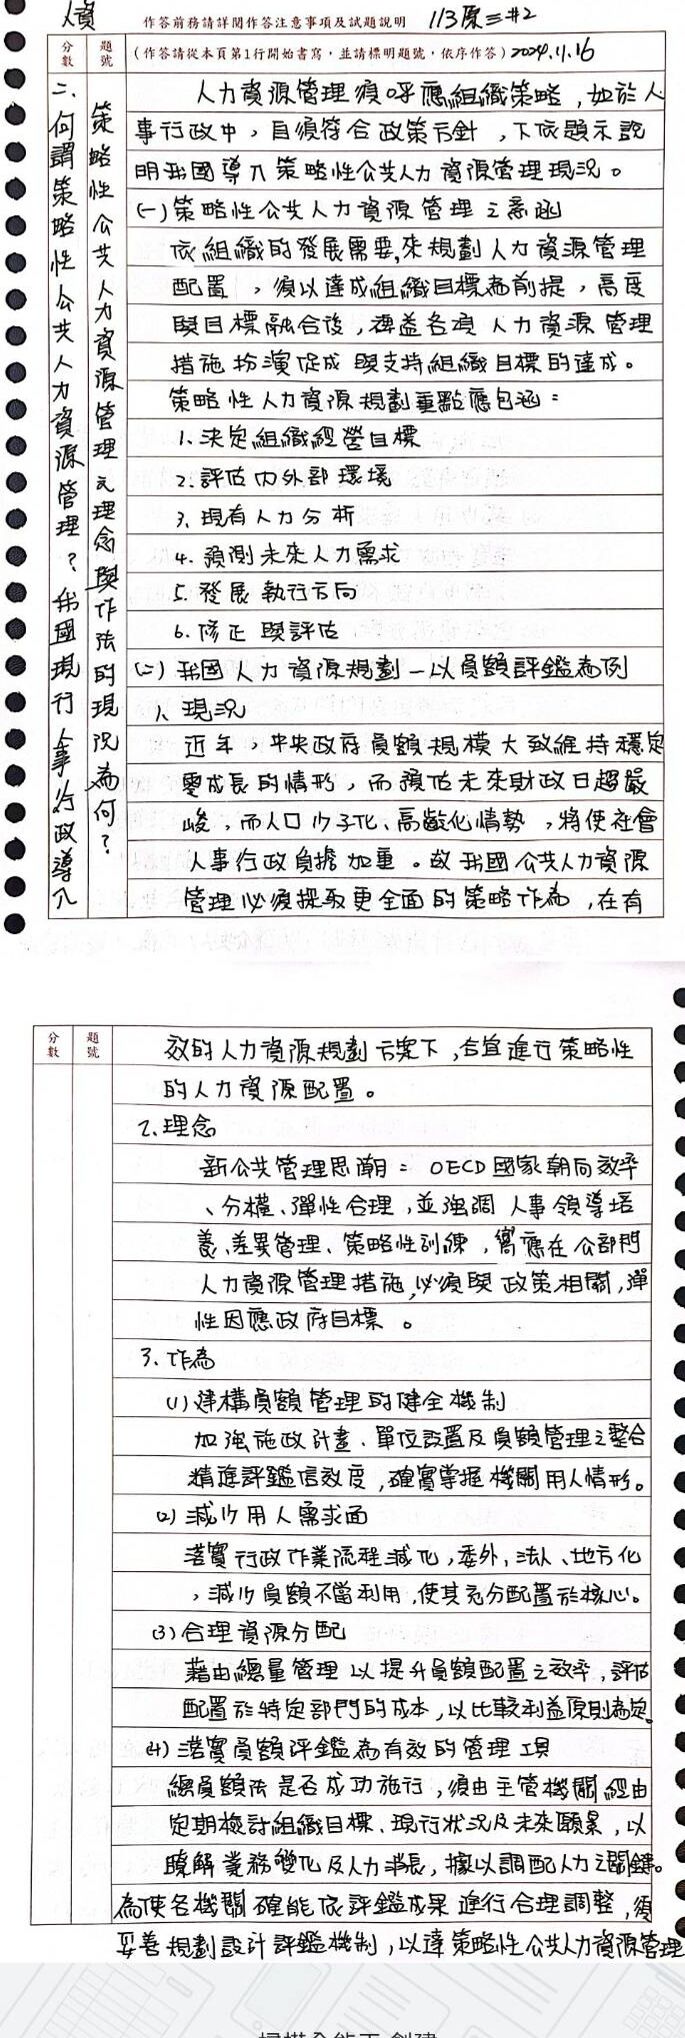 人資
作答前務請詳閱作答注意事項及試題說明 113原三#2
分數 題號 (作答請從本頁第1行開始書寫，並請標明題號，依序作答) 2024.11.16
二、何謂策略性公共人力資源管理？我國現行人事行政導入
策略性公共人力資源管理之理念與作法的現況為何？
人力資源管理須呼應組織策略，如於人
事行政中，自須符合政策方針，下依題示說
明我國導入策略性公共人力資源管理現況。
(一)策略性公共人力資源管理之意涵
依組織的發展需要，來規劃人力資源管理
配置，須以達成組織目標為前提，高度
與目標融合後，裨益各項人力資源管理
措施扮演促成與支持組織目標的達成。
策略性人力資源規劃重點應包涵：
1.決定組織經營目標
2.評估內外部環境
3.現有人力分析
4.預測未來人力需求
5.發展執行方向
6.修正與評估
(二)我國人力資源規劃－以員額評鑑為例
1、現況
近年，中央政府員額規模大致維持穩定
零成長的情形，而預估未來財政日趨嚴
峻，而人口少子化、高齡化情勢，將使社會
人事行政負擔加重。故我國公共人力資源
管理必須採取更全面的策略作為，在有
分數 題號
效的人力資源規劃方案下，合宜進行策略性
的人力資源配置。
2、理念
新公共管理思潮：OECD國家朝向效率
、分權、彈性合理，並強調人事領導培
養、差異管理、策略性訓練，嚮應在公部門
人力資源管理措施，必須與政策相關，彈
性因應政府目標。
3、作為
(1)建構員額管理的健全機制
加強施政計畫、單位設置及員額管理之整合
精進評鑑信效度，確實掌握機關用人情形。
(2)減少用人需求面
落實行政作業流程減化，委外，法人、地方化
，減少員額不當利用，使其充分配置於核心。
(3)合理資源分配
藉由總量管理以提升員額配置之效率，評估
配置於特定部門的成本，以比較利益原則為定。
(4)落實員額評鑑為有效的管理工具
總員額法是否成功施行，須由主管機關經由
定期檢討組織目標、現行狀況及未來願景，以
瞭解業務變化及人力消長，據以調配人力之關鍵。
為使各機關確能依評鑑成果進行合理調整，須
妥善規劃設計評鑑機制，以達策略性公共人力資源管理